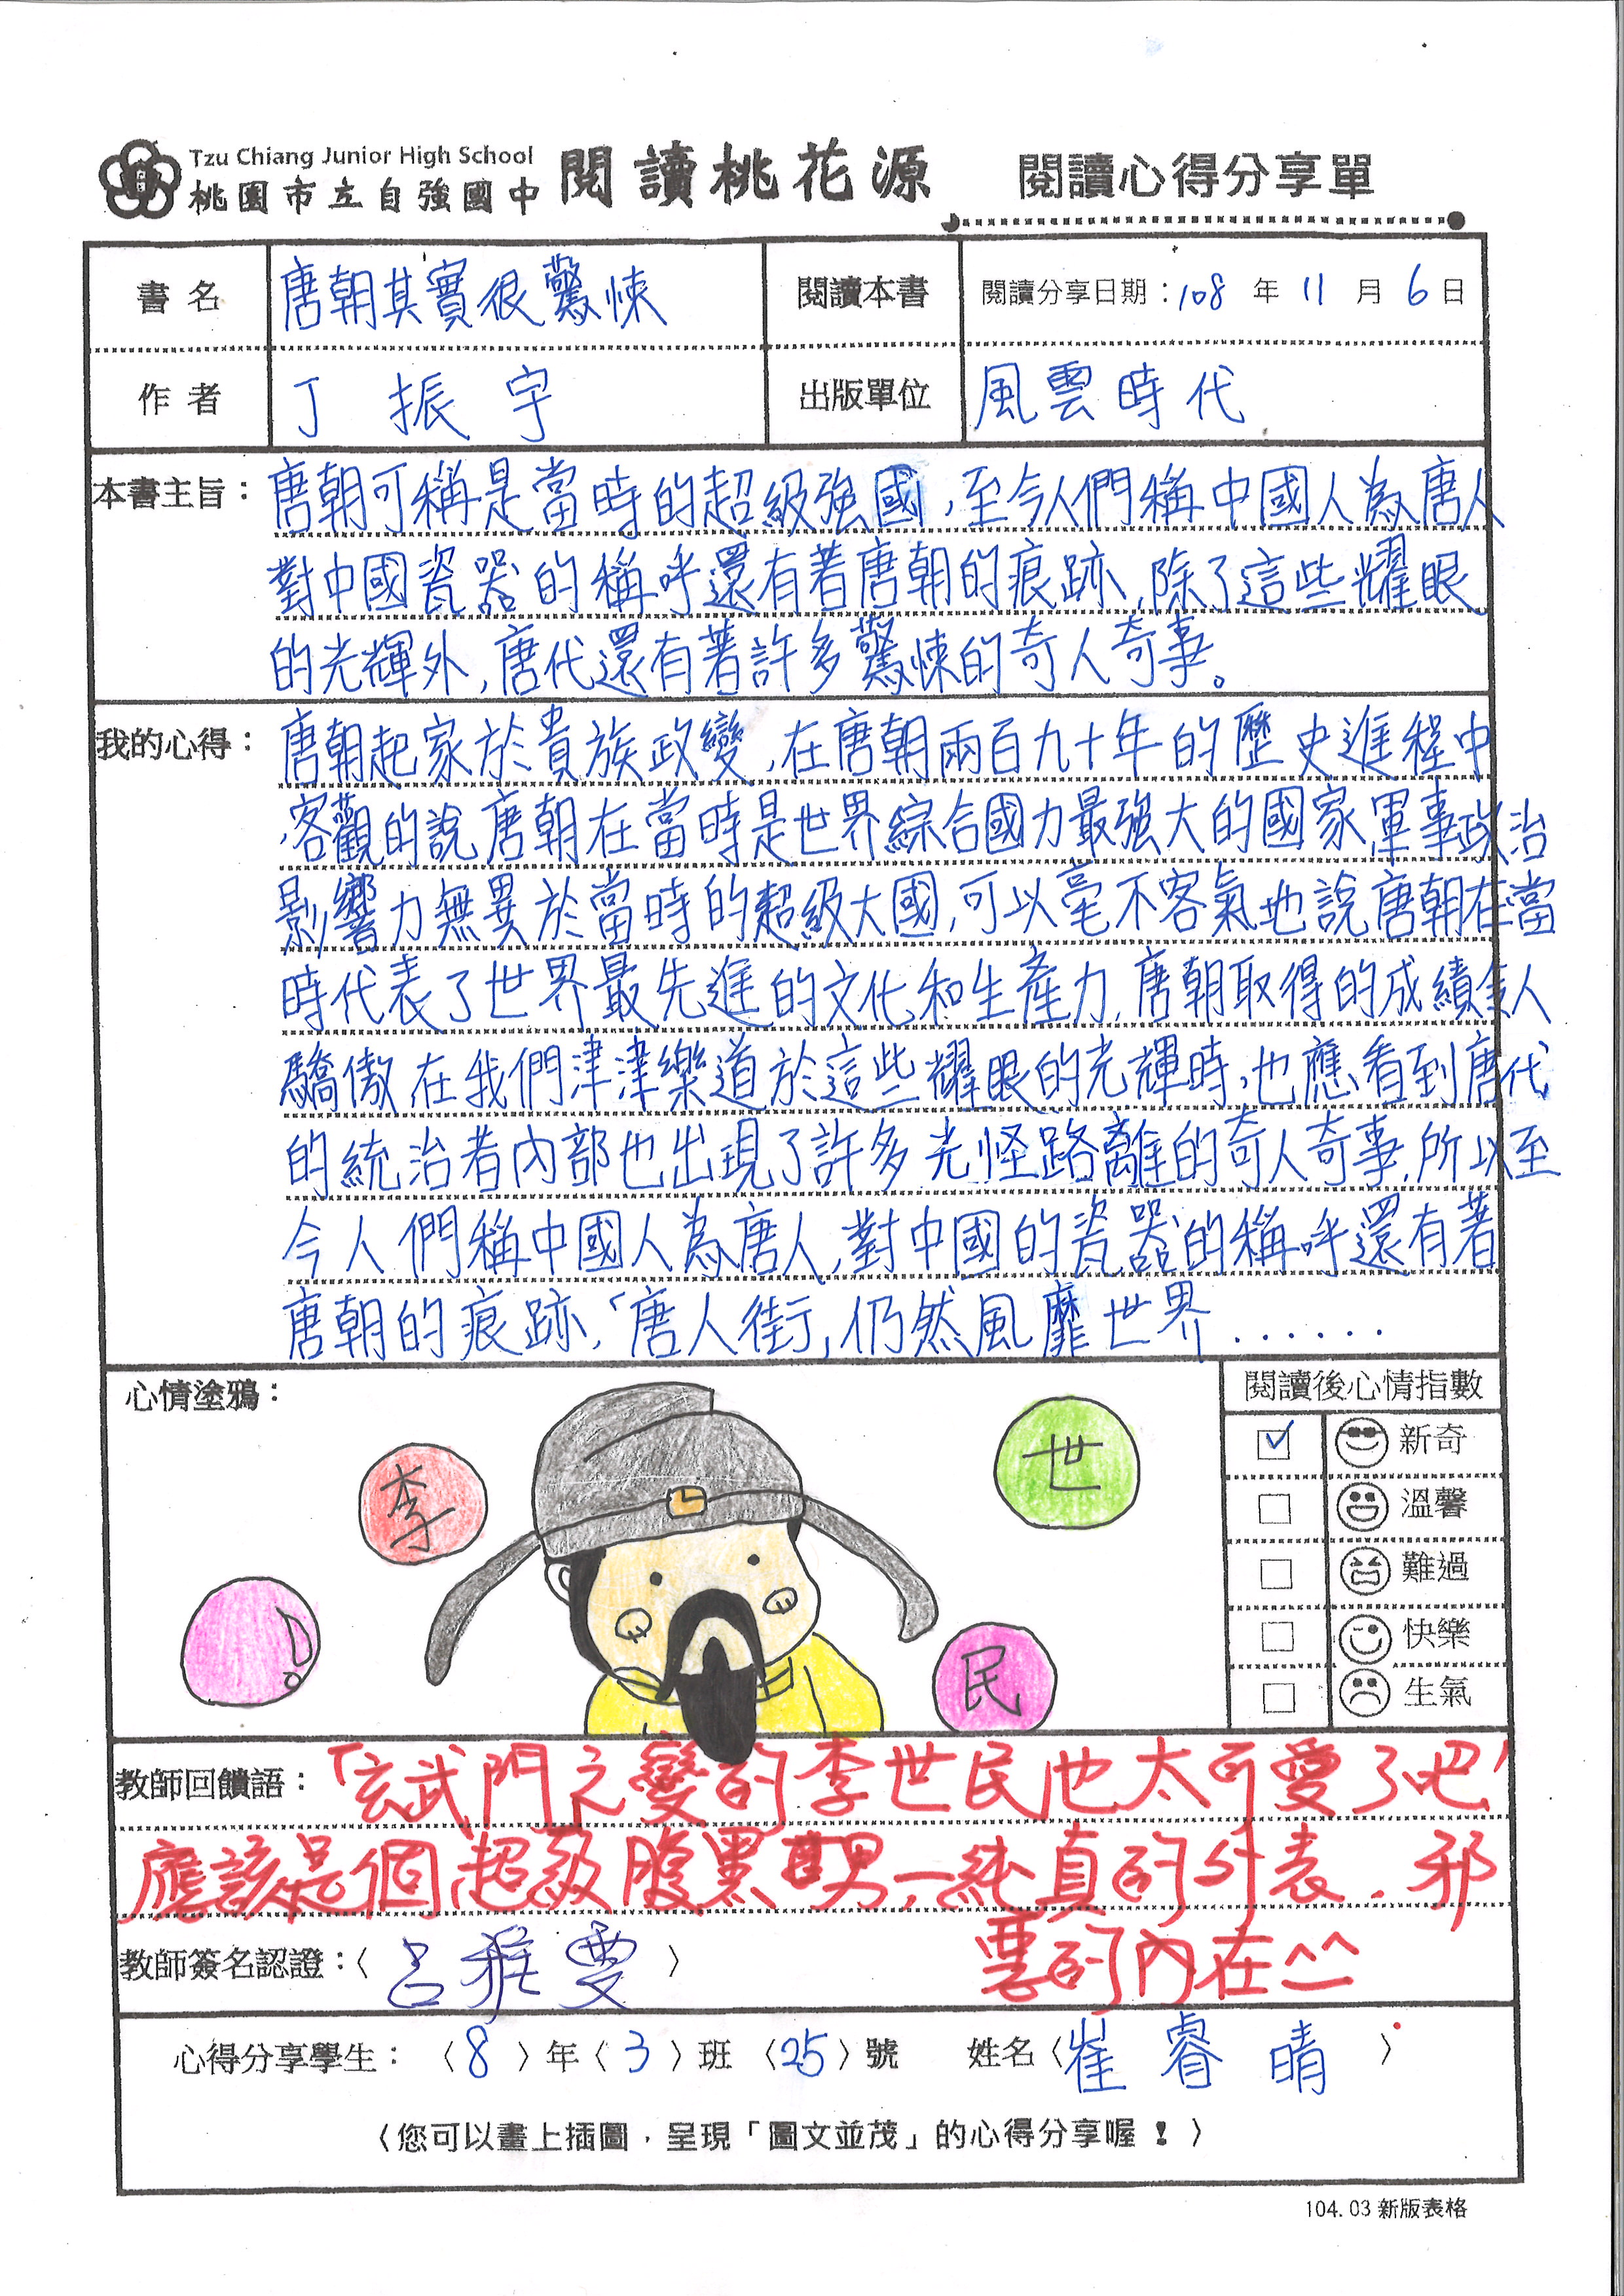 Tzu Chiang Junior High School
桃園市立自強國中 閱讀桃花源 閱讀心得分享單
書名 唐朝其實很驚悚 閱讀本書 閱讀分享日期：108年11月6日
作者 丁振宇 出版單位 風雲時代
本書主旨：唐朝可稱是當時的超級強國，至今人們稱中國人為唐人
對中國瓷器的稱呼還有著唐朝的痕跡，除了這些耀眼
的光輝外，唐代還有著許多驚悚的奇人奇事。
我的心得：唐朝起家於貴族政變，在唐朝兩百九十年的歷史進程中
，客觀的說唐朝在當時是世界綜合國力最強大的國家，軍事政治
影響力無異於當時的超級大國，可以毫不客氣地說唐朝在當
時代表了世界最先進的文化和生產力，唐朝取得的成績令人
驕傲，在我們津津樂道於這些耀眼的光輝時，也應看到唐代
的統治者內部也出現了許多光怪路離的奇人奇事，所以至
今人們稱中國人為唐人，對中國的瓷器的稱呼還有著
唐朝的痕跡，「唐人街」仍然風靡世界......
心情塗鴉：
李
世
民
！
閱讀後心情指數
✓ 新奇
溫馨
難過
快樂
生氣
教師回饋語：「玄武門之變的李世民也太可愛了吧！
應該是個超級腹黑男，純真的外表，邪
惡的內在^^
教師簽名認證：〈呂雅雯〉
心得分享學生：〈8〉年〈3〉班〈25〉號 姓名〈崔睿晴〉
〈您可以畫上插圖，呈現「圖文並茂」的心得分享喔！〉
104.03新版表格